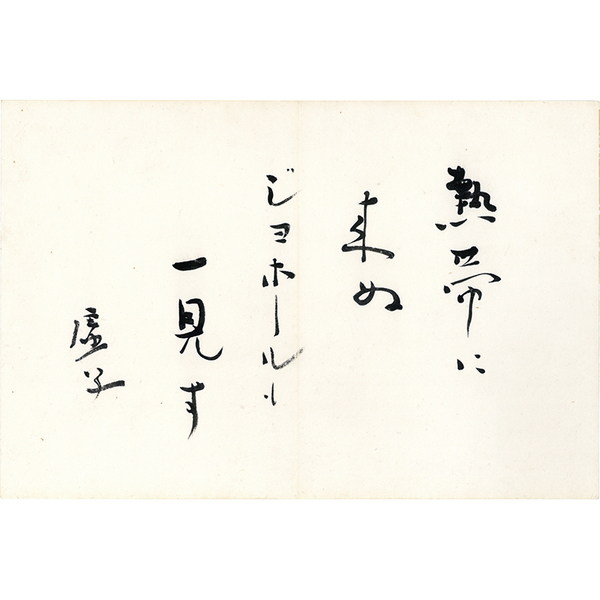 熱帯に
来ぬ
ジヨホールも
一見す
虚子